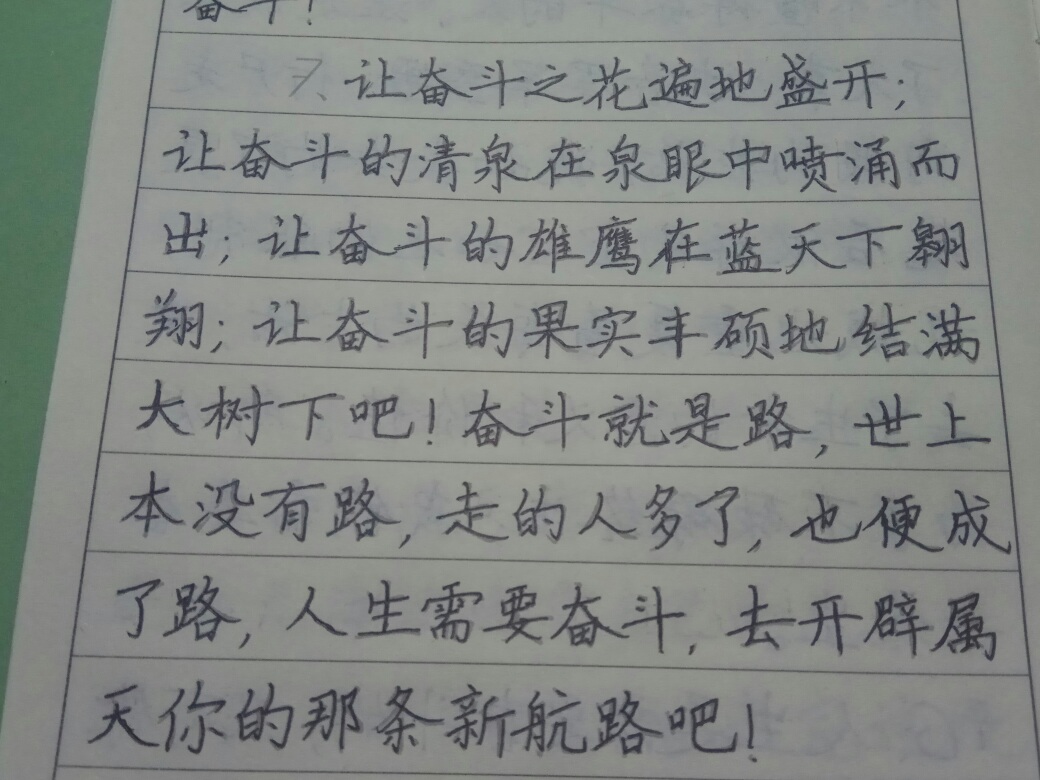 奋斗！
7、让奋斗之花遍地盛开；
让奋斗的清泉在泉眼中喷涌而
出；让奋斗的雄鹰在蓝天下翱
翔；让奋斗的果实丰硕地结满
大树下吧！奋斗就是路，世上
本没有路，走的人多了，也便成
了路，人生需要奋斗，去开辟属
天你的那条新航路吧！